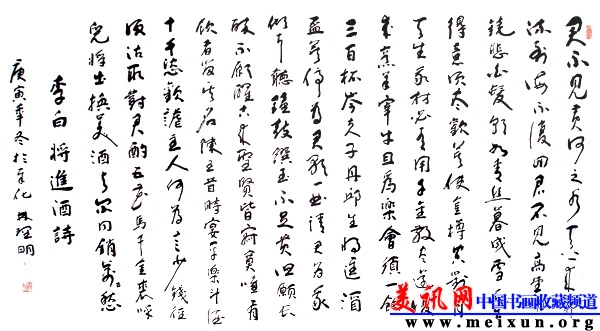 君不見黃河之水天上來奔
流到海不復回君不見高堂明
鏡悲白髮朝如青絲暮成雪人生
得意須盡歡莫使金樽空對月
天生我材必有用千金散盡還復
來烹羊宰牛且為樂會須一飲
三百杯岑夫子丹邱生將進酒
盃莫停為君歌一曲請君為我
傾耳聽鐘鼓饌玉不足貴但願長
醉不願醒古來聖賢皆寂寞唯有
飲者留其名陳王昔時宴平樂斗酒
十千恣歡謔主人何為言少錢徑
須沽取對君酌五花馬千金裘呼
兒將出換美酒與爾同銷萬古愁
李白將進酒詩
庚寅年冬於化明
美讯网 中国书画收藏频道
www.meixun.org